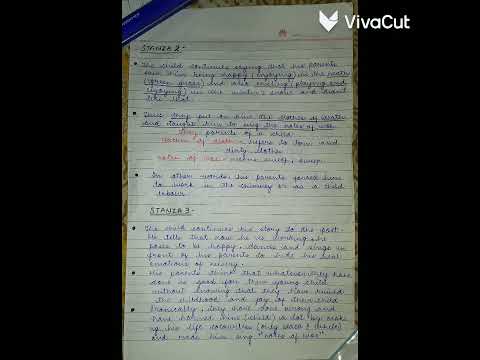 VivaCut
STANZA 2 -
The child continues saying that his parents
saw him being happy (enjoying) in the heath
(green grass) and also smiling (playing and
enjoying) in the winter's snow and didn't
like that.
Thus they put on him the clothes of death
and taught him to sing the notes of woe.
They parents of a child
clothes of death - refers to torn and
dirty clothes
notes of woe - means sweep, sweep
In other words, his parents forced him
to work in the chimney or as a child
labour.
STANZA 3 -
The child continues his story to the poet.
He tells that now he is working, he
poses to be happy, dances and sings in
front of his parents to hide his real
emotions of misery.
His parents think that whatever they have
done is good for their young child
without knowing that they have ruined
the childhood and joy of their child
Ironically, they have done wrong and
have harmed mine (child) a lot by mak
ng his life colourless (only black & white)
and made him sing "notes of woe".